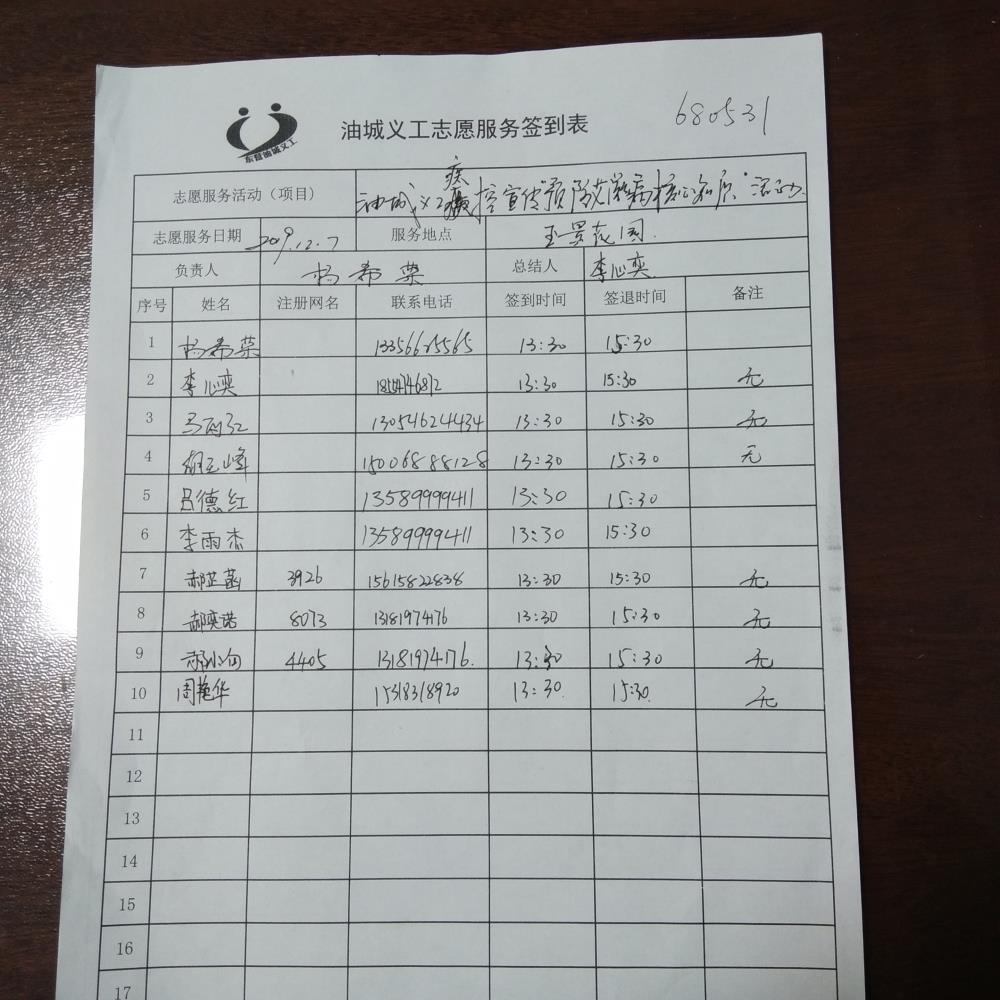 680531
油城义工志愿服务签到表
东营油城义工
志愿服务活动（项目） 油城义工疾控宣传"预防艾滋病核心知识"活动
志愿服务日期 2019.12.7 服务地点
负责人 杨希荣 总结人 李心奕
序号 姓名 注册网名 联系电话 签到时间 签退时间 备注
1 杨希荣 13:30 15:30
2 李心奕 18554746812 13:30 15:30 无
3 马丽红 13054624434 13:30 15:30 无
4 15006888128 13:30 15:30 无
5 吕德红 13589999411 13:30 15:30
6 李雨杰 13589999411 13:30 15:30
7 郝芷菡 3926 15615822838 13:30 15:30 无
8 郝奕诺 8073 13181974176 13:30 15:30 无
9 4405 13181974176. 13:30 15:30 无
10 周艳华 15318318920 13:30. 15:30 无
11
12
13
14
15
16
17